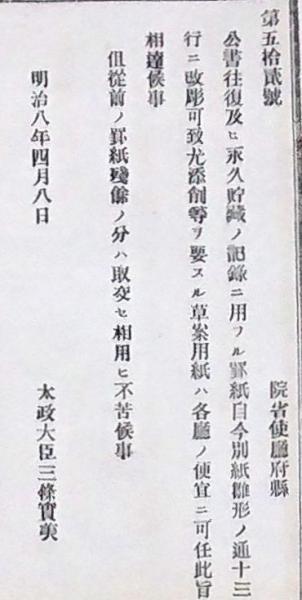 第五拾貳號
院省使廳府縣
公書往復及ヒ永久貯藏ノ記錄ニ用フル罫紙自今別紙雛形ノ通十三
行ニ改彫可致尤添削等ヲ要スル草案用紙ハ各廳ノ便宜ニ可任此旨
相達候事
但從前ノ罫紙殘餘ノ分ハ取交セ相用ヒ不苦候事
明治八年四月八日
太政大臣三條實美